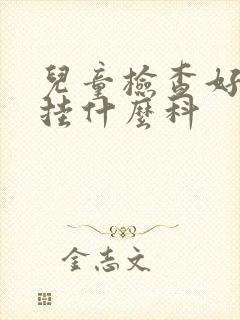 兒童檢查好
挂什麼科
金志文